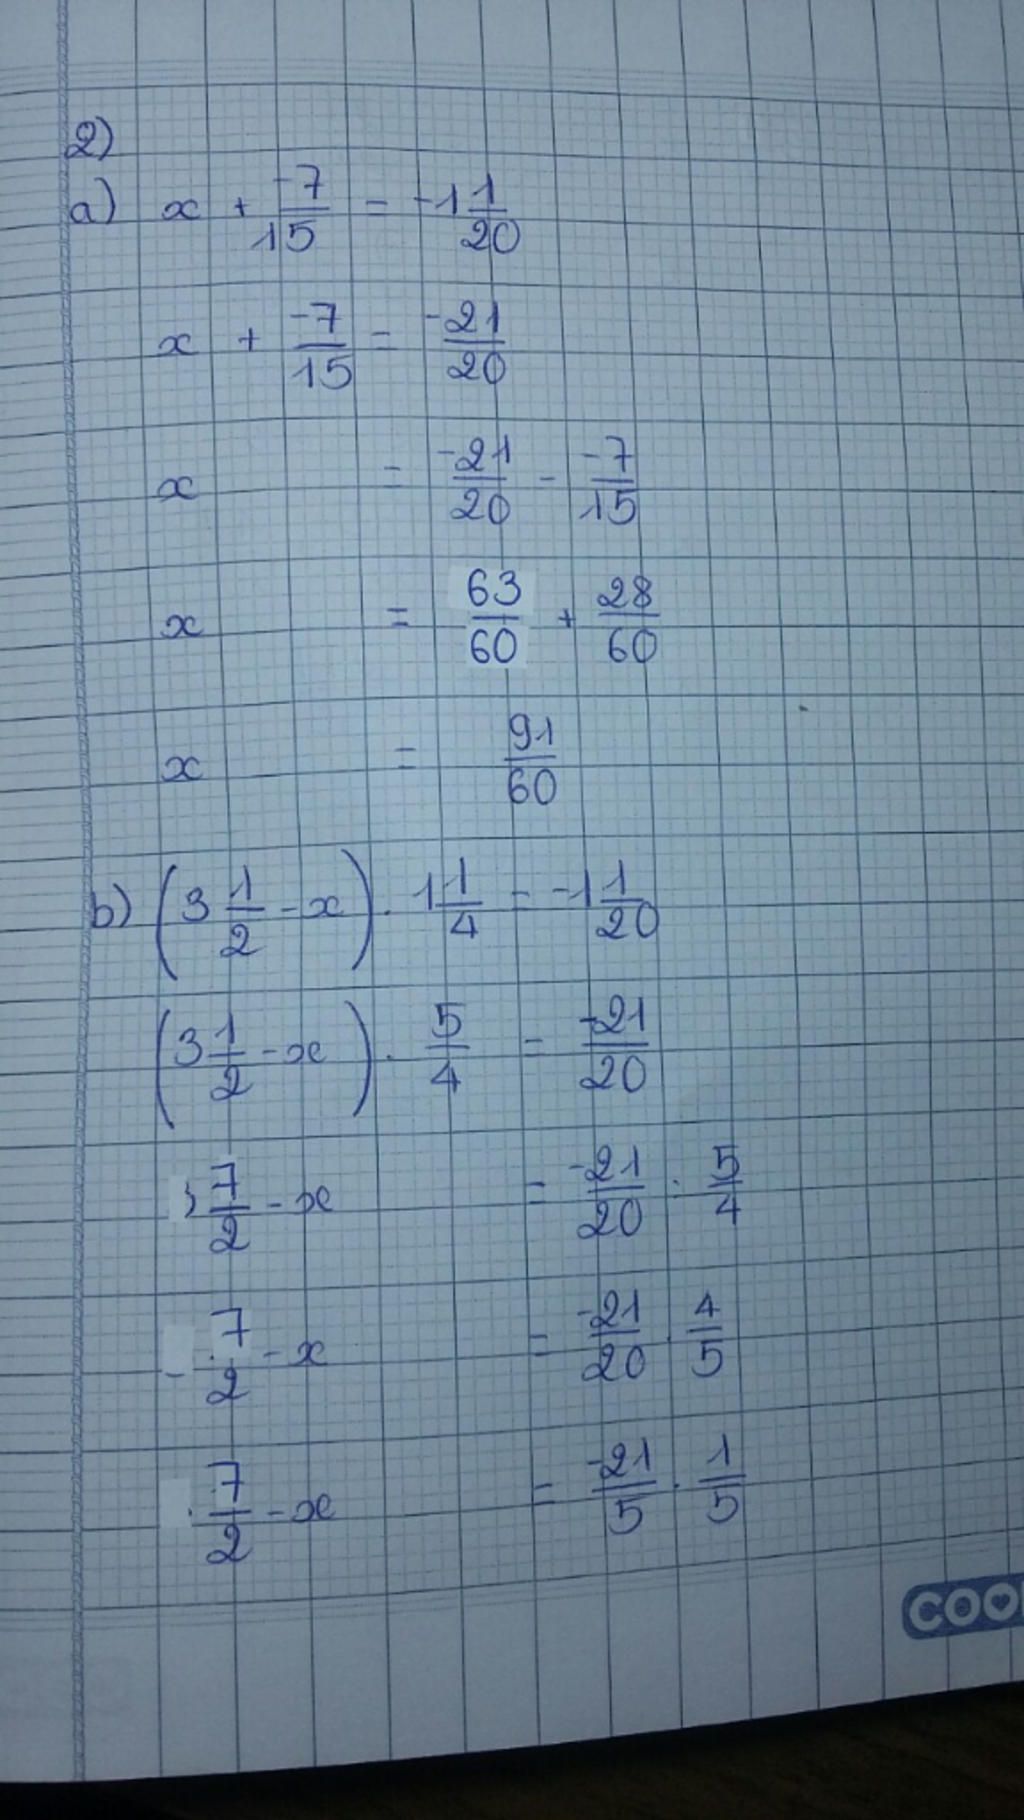 2)
a) x + -7/15 = -1 1/20
x + -7/15 = -21/20
x = -21/20 - -7/15
x = 63/60 + 28/60
x = 91/60
b) (3 1/2 - x) . 1 1/4 = -1 1/20
(3 1/2 - x) . 5/4 = -21/20
7/2 - x = -21/20 : 5/4
7/2 - x = -21/20 . 4/5
7/2 - x = -21/5 . 1/5